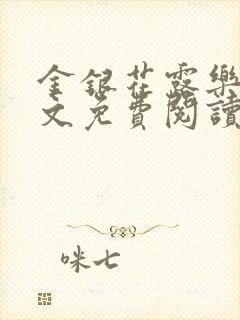 金銀花露樂
文免費閱讀
咪七